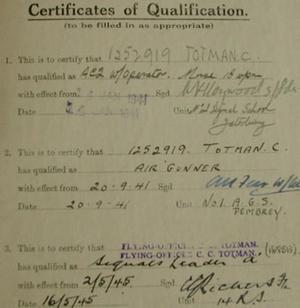 Certificates of Qualification.
(to be filled in as appropriate)
1. This is to certify that 1252919 TOTMAN. C.
has qualified as W/operator. Morse
with effect from 1941 Sgd.
Date Unit No 2 Signal School
2. This is to certify that 1252919. TOTMAN. C.
has qualified as AIR GUNNER
with effect from 20-9-41 Sgd.
Date 20-9-41 Unit No. 1. A.G.S.
PEMBREY.
3. This is to certify that FLYING-OFFICER C. C. TOTMAN.
FLYING-OFFICER C. C. TOTMAN.
has qualified as Signals Leader 'A'
with effect from 2/5/45. Sgd.
Date 16/5/45 Unit 14 R.S.